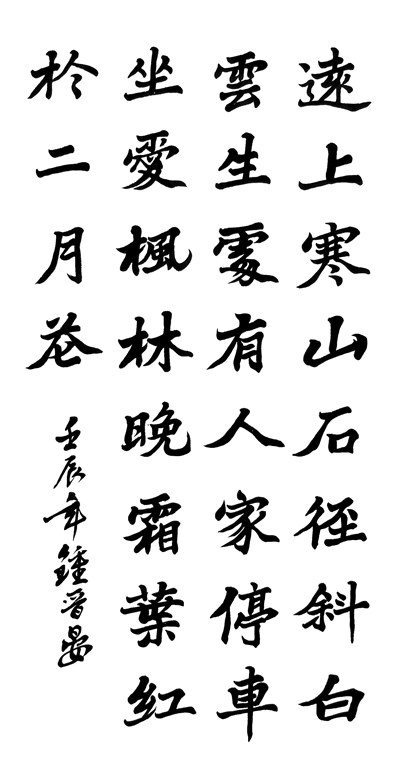 遠上寒山石徑斜白
雲生處有人家停車
坐愛楓林晚霜葉紅
於二月花
壬辰年鍾晉晏